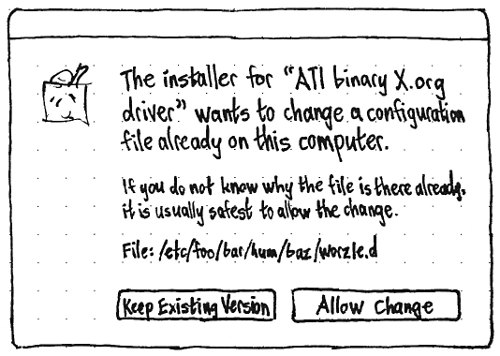 The installer for "ATI binary X.org
driver" wants to change a configuration
file already on this computer.
If you do not know why the file is there already,
it is usually safest to allow the change.
File: /etc/foo/bar/hum/baz/worzle.d
Keep Existing Version
Allow Change